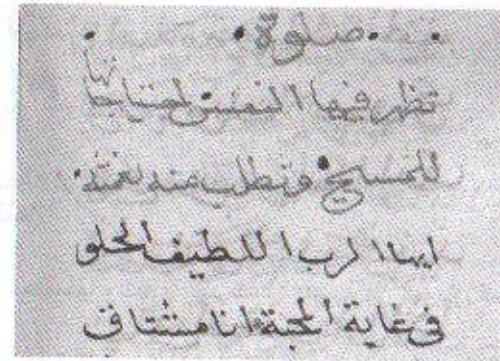 صلوة
تظهر فيها النفس احتياجاتها
للمسيح وتطلب منه نعمته.
ايها الرب اللطيف الحلو
فى غاية المحبة انا مشتاق